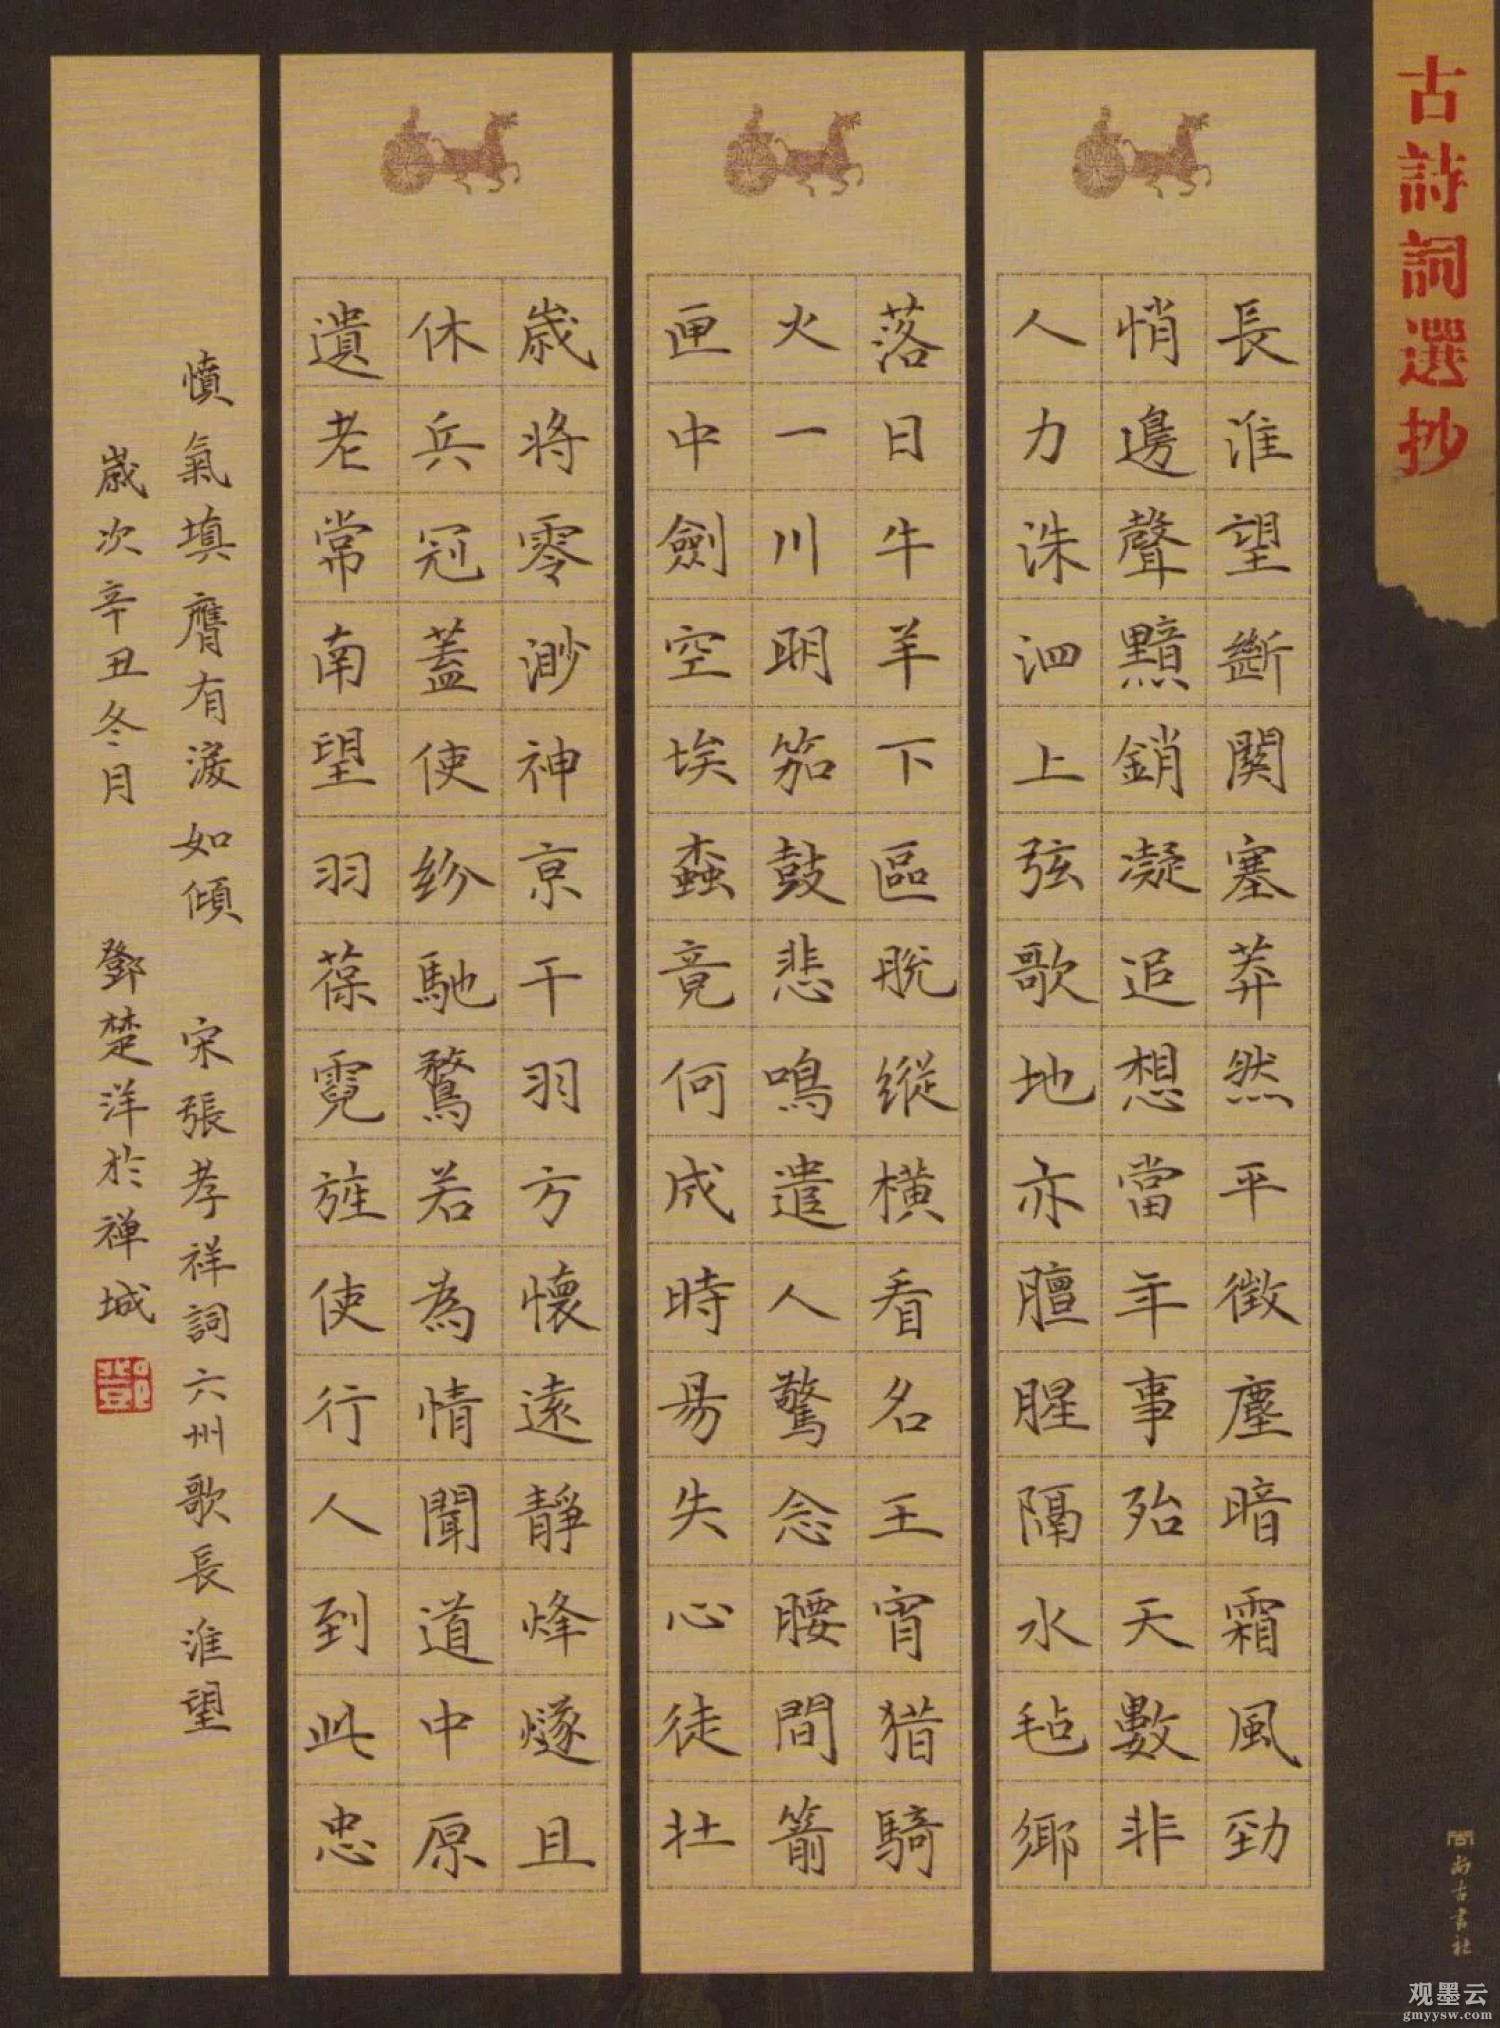 古詩詞選抄
長淮望斷關塞莽然平徵塵暗霜風勁
悄邊聲黯銷凝追想當年事殆天數非
人力洙泗上弦歌地亦膻腥隔水氈鄉
落日牛羊下區脫縱橫看名王宵猎騎
火一川明笳鼓悲鳴遣人驚念腰間箭
匣中劍空埃蠹竟何成時易失心徒壯
歲將零渺神京干羽方懷遠靜烽燧且
休兵冠蓋使紛馳騖若為情聞道中原
遺老常南望羽葆霓旌使行人到此忠
憤氣填膺有淚如傾 宋張孝祥詞六州歌長淮望
歲次辛丑冬月 鄧楚洋於禅城
尚古書社
观墨云
gmyysw.com